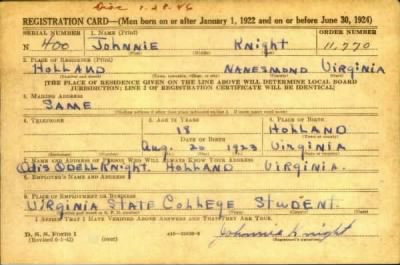 Disc 1.28.46
REGISTRATION CARD—(Men born on or after January 1, 1922 and on or before June 30, 1924)
SERIAL NUMBER 1. NAME (Print) ORDER NUMBER
N 400 Johnnie Knight 11,770
2. PLACE OF RESIDENCE (Print)
Holland Nanesmond Virginia
[THE PLACE OF RESIDENCE GIVEN ON THE LINE ABOVE WILL DETERMINE LOCAL BOARD
JURISDICTION; LINE 2 OF REGISTRATION CERTIFICATE WILL BE IDENTICAL]
3. MAILING ADDRESS
SAME
4. TELEPHONE 5. AGE IN YEARS 6. PLACE OF BIRTH
18 Holland
DATE OF BIRTH
Aug. 20 1923 Virginia
7. NAME AND ADDRESS OF PERSON WHO WILL ALWAYS KNOW YOUR ADDRESS
Otis Odell Knight. Holland Virginia.
8. EMPLOYER'S NAME AND ADDRESS
9. PLACE OF EMPLOYMENT OR BUSINESS
Virginia State College Student.
I AFFIRM THAT I HAVE VERIFIED ABOVE ANSWERS AND THAT THEY ARE TRUE.
D. S. S. FORM 1
(Revised 6-1-42) (over) Johnnie Knight